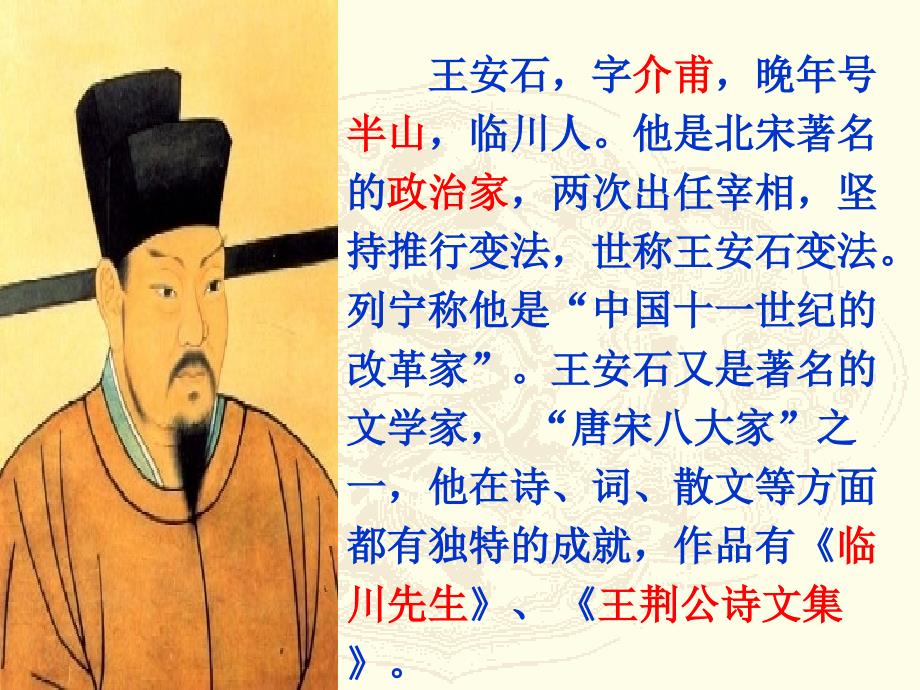 王安石，字介甫，晚年号
半山，临川人。他是北宋著名
的政治家，两次出任宰相，坚
持推行变法，世称王安石变法。
列宁称他是“中国十一世纪的
改革家”。王安石又是著名的
文学家， “唐宋八大家”之
一，他在诗、词、散文等方面
都有独特的成就，作品有《临
川先生》、《王荆公诗文集
》。